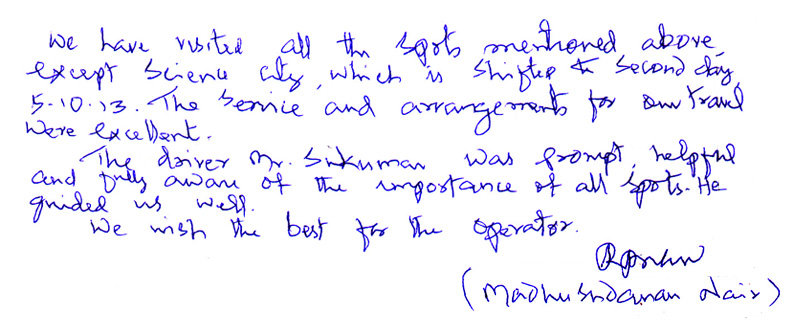 We have visited all the spots mentioned above,
except Science City, which is shifted to second day,
5.10.13. The service and arrangements for our travel
were excellent.
The driver Mr. Sukumar was prompt, helpful
and fully aware of the importance of all spots. He
guided us well.
We wish the best for the operator.
(Madhusudanan Nair)